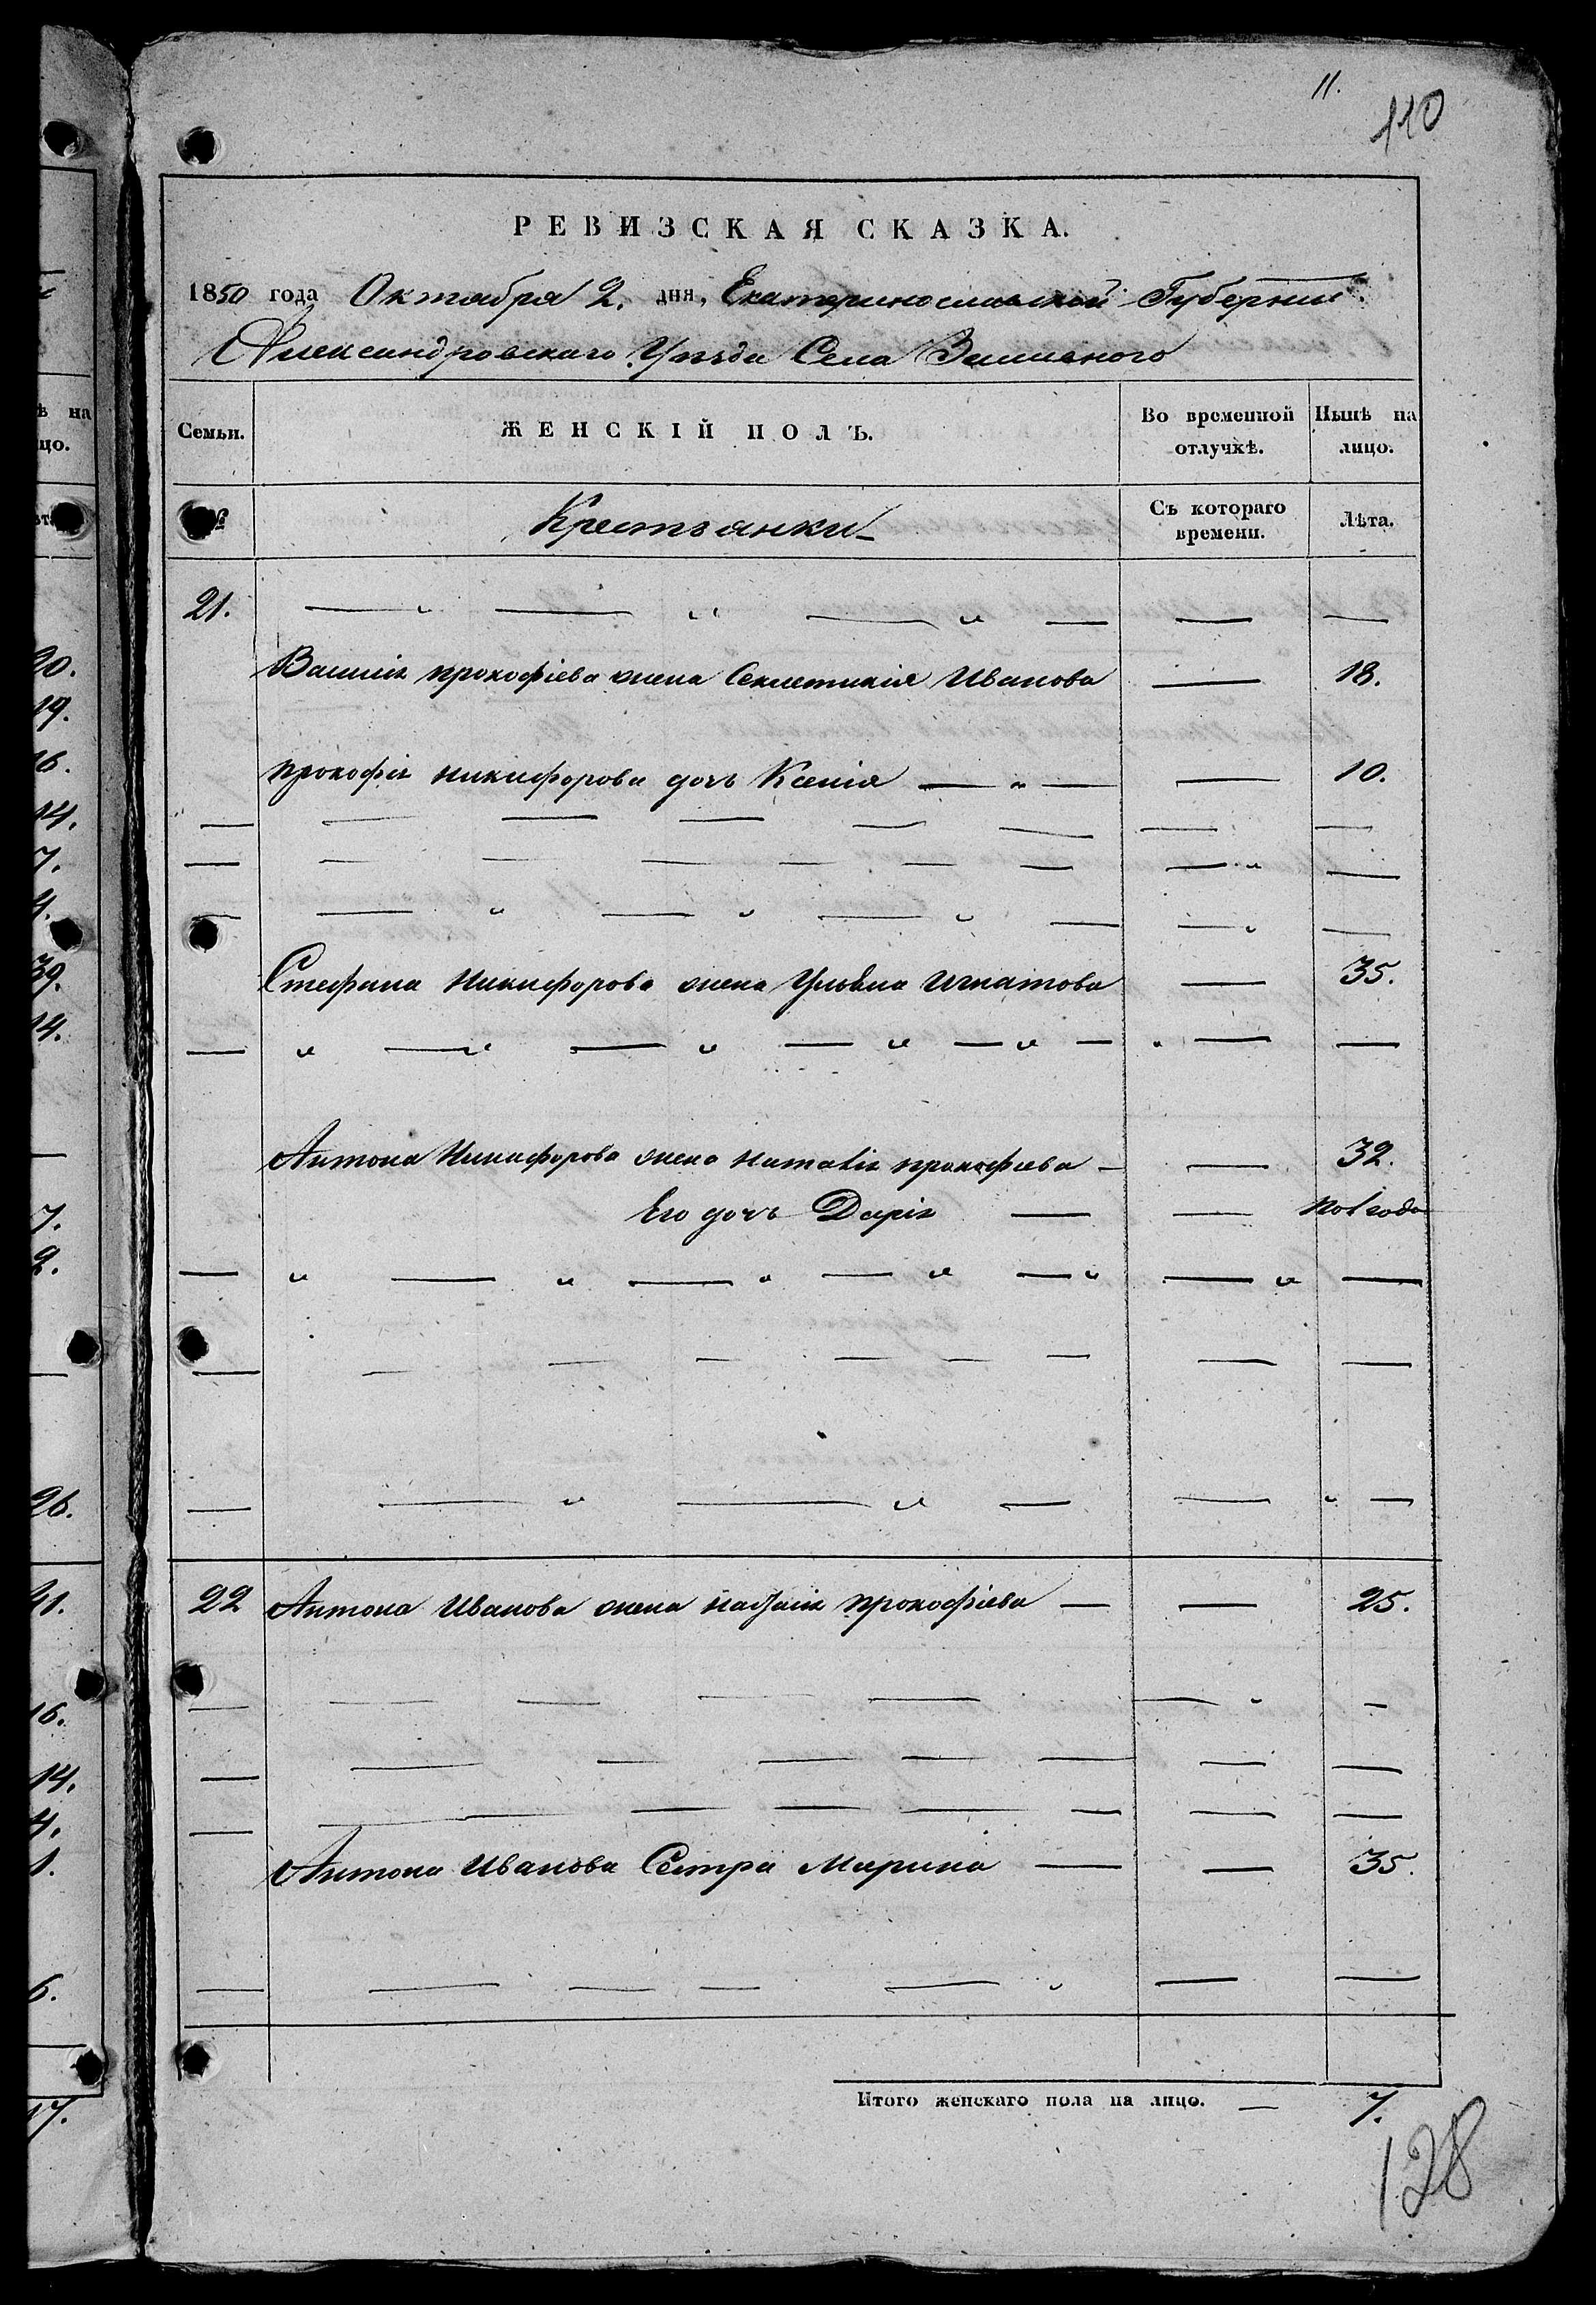 11.
110
РЕВИЗСКАЯ СКАЗКА.
1850 года Октября 2. дня, Екатеринославской Губернии
Александровскаго Уѣзда Села Заливного
Семьи. ЖЕНСКІЙ ПОЛЪ. Во временной отлучкѣ. Нынѣ на лицо.
№ Крестьянки Съ котораго времени. Лѣта.
21.
Василія прокофіева жена Секлетикія Иванова 18.
прокофія никифорова дочь Ксенія 10.
Стефана Никифорова жена Ульяна Игнатова 35.
Антона Никифорова жена наталія прокофиева 32.
Его дочь Дарія пол года
22 Антона Иванова жена прокофіева 25.
Антона Иванова Сестра Марина 35.
Итого женскаго пола на лицо. 7.
128
20.
19.
16.
14.
7.
4.
39.
14.
7.
2.
26.
41.
16.
14.
4.
1.
6.
17.